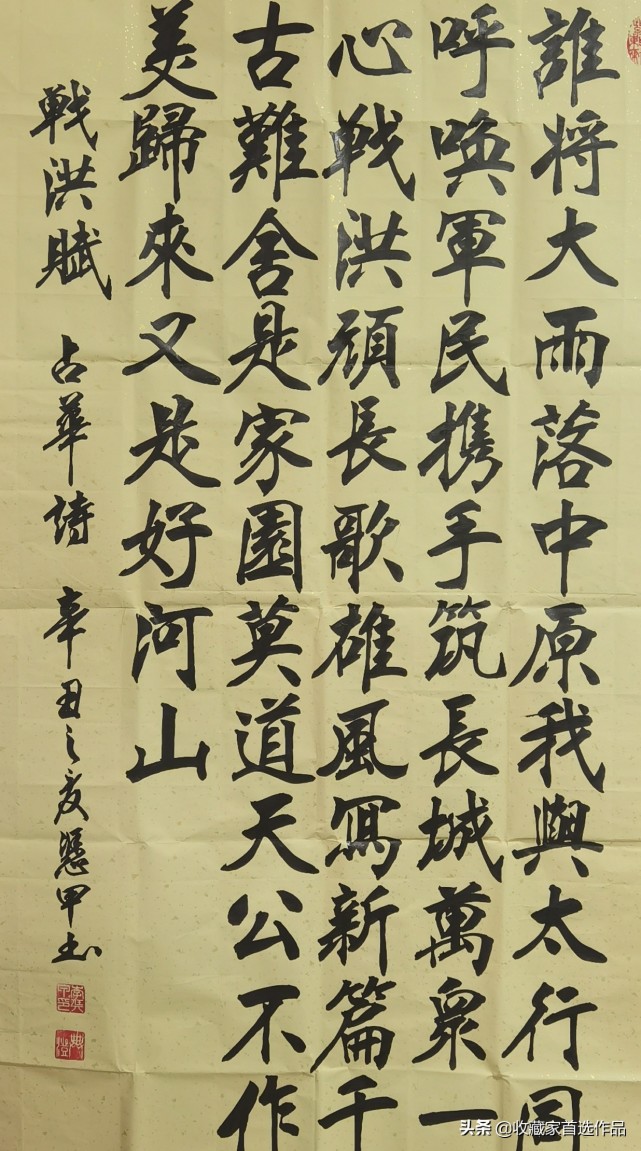 誰将大雨落中原我與太行同
呼喚軍民携手筑長城萬衆一
心戦洪頑長歌雄風寫新篇千
古難舍是家園莫道天公不作
美歸來又是好河山
戦洪賦 占華詩 辛丑之夏 甲书
头条 @收藏家首选作品